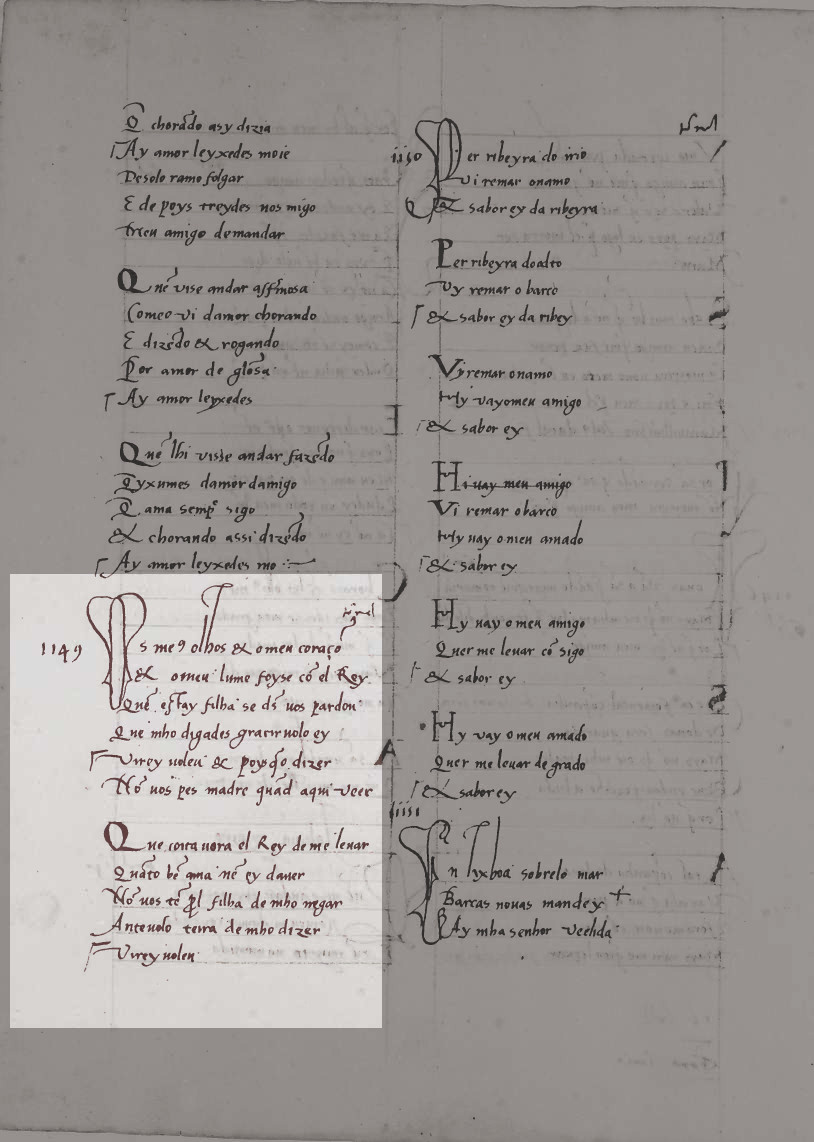 Q̄ chorādo asy dizia
Ay amor leyxedes moie
De solo ramo folgar
E de poys treydes nos migo
meu amigo demandar
Quē vise andar aſſmosa
Comeo vi damor chorando
E dizēdo & rogando
Por amor de glosa
Ay amor leyxedes
Quē lhi visse andar fazēdo
Q̄yxumes damor damigo
Q̄ ama semp̃ sigo
& chorando assi dizēdo
Ay amor leyxedes mo
1149
Os me9 olhos & o meu coraçō
& o meu lume foyse cō el Rey
Quē estay filha se ds̄ uos pardon
Que mho digades gracir uolo ey
Virey uoleu & poys q̄o dizer
Nō uos pes madre quād aqui veer
Que coita uora el Rey de me leuar
Quāto bē ama nē ey dauer
Nō uos tē prol filha de mho negar
Ante uolo terra de mho dizer
Virey uoleu
1150
Per ribeyra do irio
vi remar o namo
& sabor ey da ribeyra
Per ribeyra do alto
Vy remar o barco
& sabor ey da ribey
Vy remar o namo
Hy vay o meu amigo
& sabor ey
Hi uay meu amigo
Vi remar o barco
Hy uay o meu amado
& sabor ey
Hy uay o meu amigo
Quer me leuar cō sigo
& sabor ey
Hy vay o meu amado
Quer me leuar de grado
& sabor ey
1151
En lixboa sobrelo mar
Barcas nouas mandey
Ay mha senhor uelida